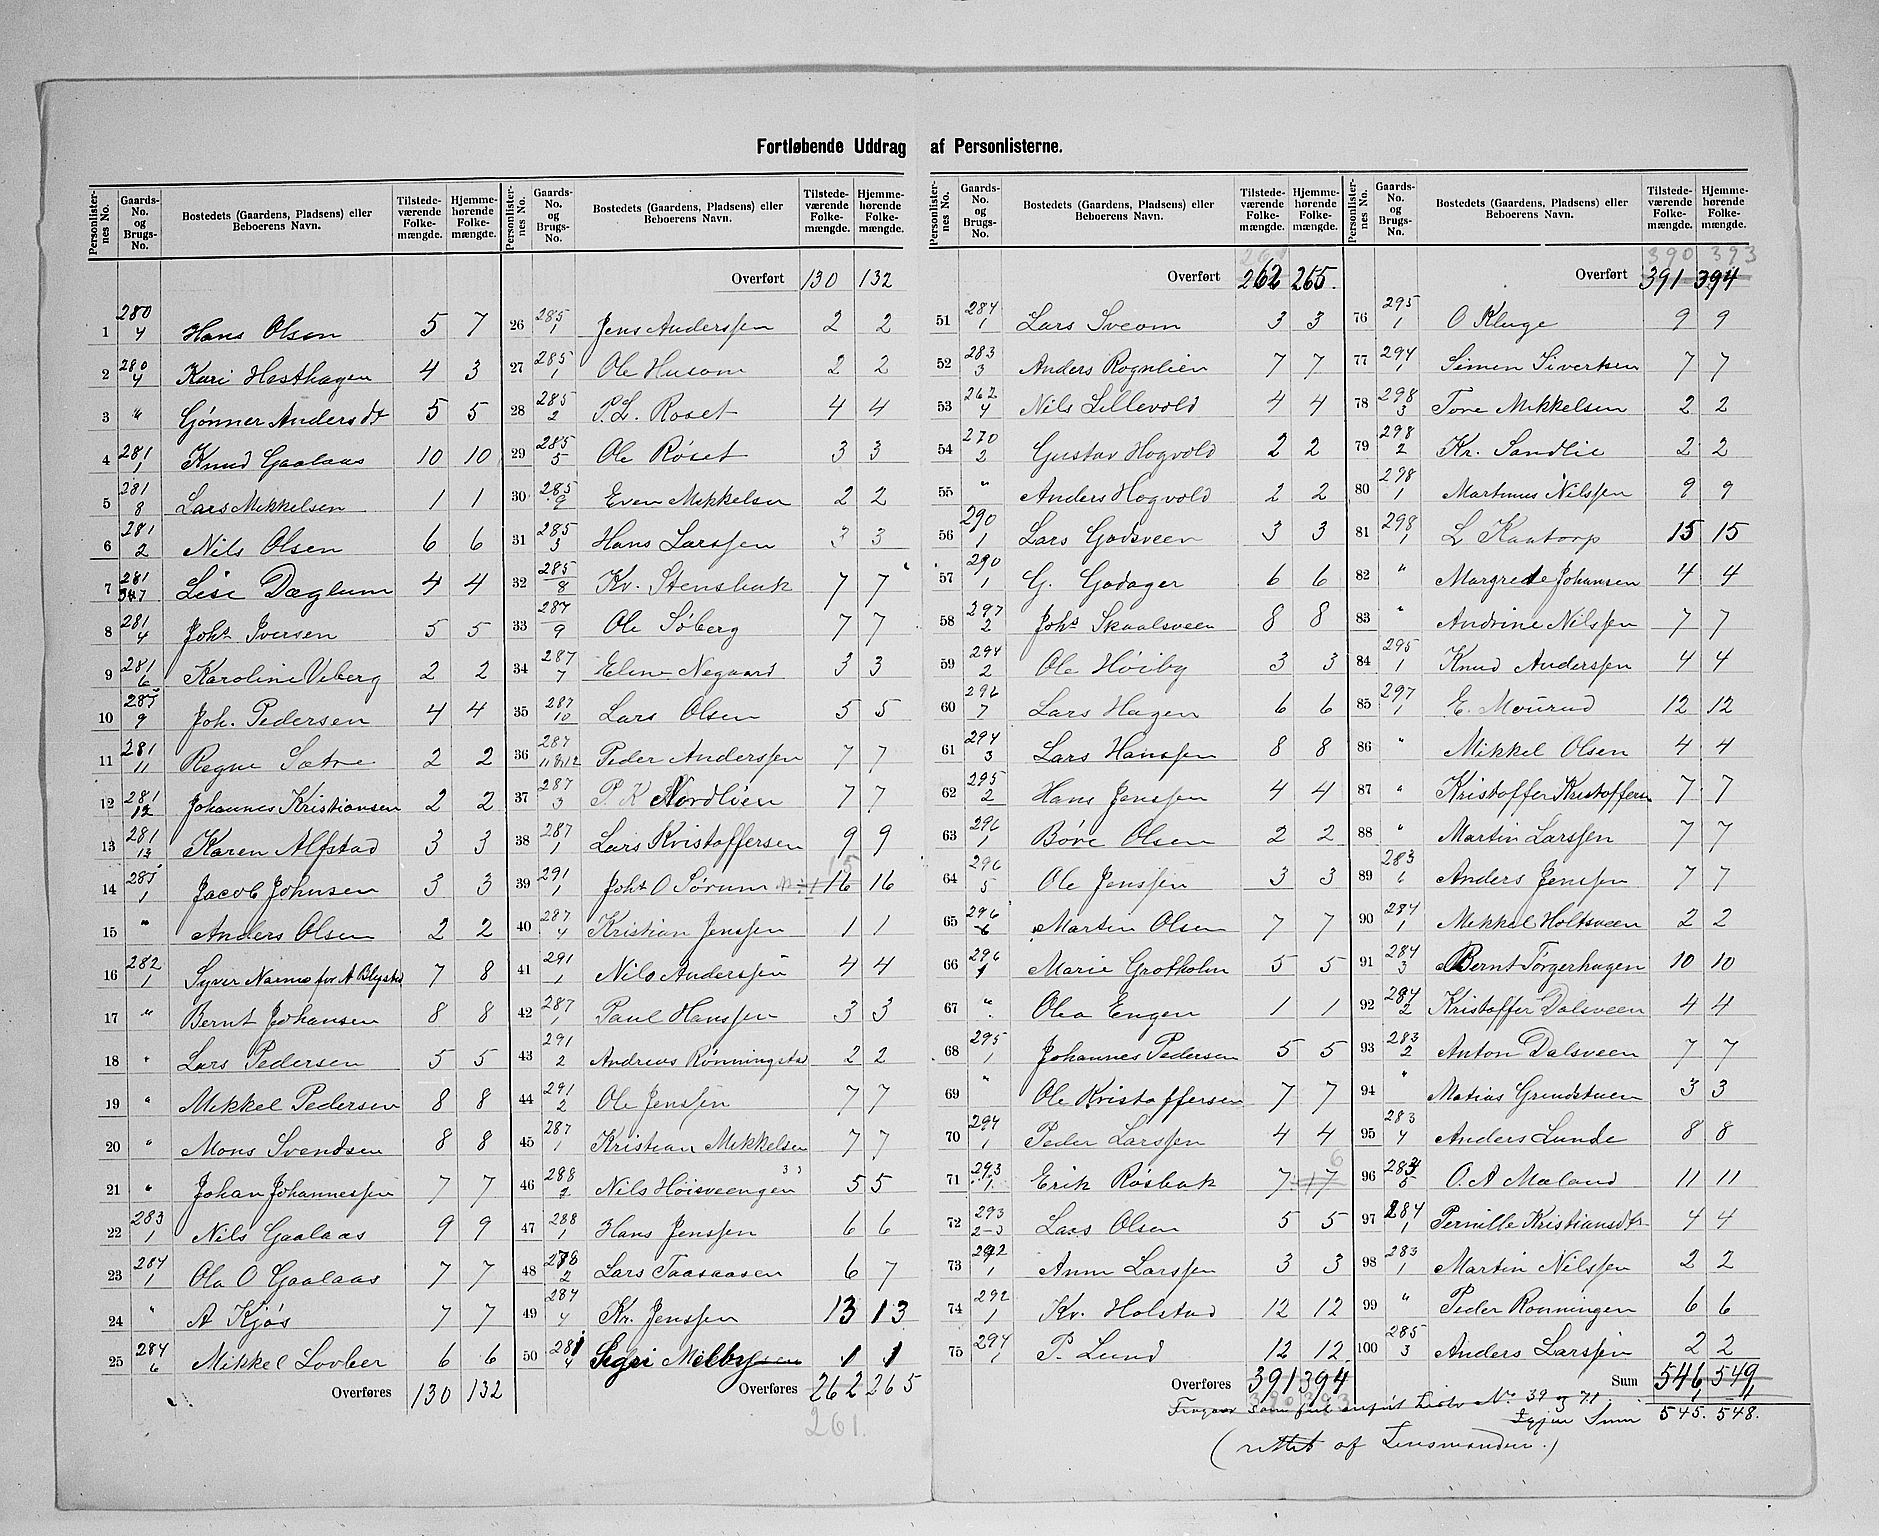 Fortløbende Uddrag af Personlisterne.
Personlisternes No. | Gaards-No. og Brugs-No. | Bostedets (Gaardens, Pladsens) eller Beboerens Navn. | Tilstedeværende Folkemængde. | Hjemmehørende Folkemængde.
1 280/4 Hans Olsen 5 7
2 280/4 Kari Hesthagen 4 3
3 " Gønner Andersdt 5 5
4 281/1 Knud Gaalaas 10 10
5 281/8 Lars Mikkelsen 1 1
6 281/2 Nils Olsen 6 6
7 281 Lise Dæglum 4 4
8 281/4 Johs Iversen 5 5
9 281/6 Karoline Viberg 2 2
10 281/9 Joh. Pedersen 4 4
11 281/11 Regne Sætre 2 2
12 281/12 Johannes Kristiansen 2 2
13 281/13 Karen Alfstad 3 3
14 281/1 Jacob Johnsen 3 3
15 " Anders Olsen 2 2
16 282/1 Syver Narmo for A Blystad 7 8
17 " Bernt Johansen 8 8
18 " Lars Pedersen 5 5
19 " Mikkel Pedersen 8 8
20 " Mons Svendsen 8 8
21 " Johan Johannessen 7 7
22 283/1 Nils Gaalaas 9 9
23 284/1 Ola O Gaalaas 7 7
24 " A Kjøs 7 7
25 284/6 Mikkel Lovber 6 6
Overføres 130 132
Personlisternes No. | Gaards-No. og Brugs-No. | Bostedets (Gaardens, Pladsens) eller Beboerens Navn. | Tilstedeværende Folkemængde. | Hjemmehørende Folkemængde.
Overført 130 132
26 285/1 Jens Anderssen 2 2
27 285/1 Ole Husom 2 2
28 285/2 P. L. Roset 4 4
29 285/5 Ole Røset 3 3
30 285/9 Even Mikkelsen 2 2
31 285/3 Hans Larssen 3 3
32 285/8 Kr. Stensbak 7 7
33 287/9 Ole Søberg 7 7
34 287/7 Eline Negaard 3 3
35 287/10 Lars Olsen 5 5
36 287/11&12 Peder Anderssen 7 7
37 287/3 P. K Nordlien 7 7
38 287/1 Lars Kristoffersen 9 9
39 291/1 Johs O Sørum 16 16
40 287/4 Kristian Jenssen 1 1
41 291/1 Nils Anderssen 4 4
42 287/1 Paul Hanssen 3 3
43 291/2 Andreas Rønningstad 2 2
44 291/2 Ole Jenssen 7 7
45 287/1 Kristian Mikkelsen 7 7
46 288/2 Nils Høisveengen 5 5
47 288/1 Hans Jenssen 6 6
48 Lars Taasaasen 6 7
49 287/4 Kr. Jenssen 13 13
50 Sigri Melby 1 1
Overføres 262 265
261.
Personlisternes No. | Gaards-No. og Brugs-No. | Bostedets (Gaardens, Pladsens) eller Beboerens Navn. | Tilstedeværende Folkemængde. | Hjemmehørende Folkemængde.
Overført 262 265.
51 284/1 Lars Sveom 3 3
52 283/3 Anders Rognlien 7 7
53 262/4 Nils Lillevold 4 4
54 270/2 Gustav Hogvold 2 2
55 " Anders Hogvold 2 2
56 290/1 Lars Godsveen 3 3
57 290/1 G. Godager 6 6
58 297/2 Johs Skaalsveen 8 8
59 294/2 Ole Høiby 3 3
60 296/7 Lars Hagen 6 6
61 294/3 Lars Hanssen 8 8
62 295/2 Hans Jenssen 4 4
63 296/1 Bøve Olsen 2 2
64 296/5 Ole Jenssen 3 3
65 296/6 Martin Olsen 7 7
66 296/1 Marie Grotholm 5 5
67 " Olea Engen 1 1
68 295/1 Johannes Pedersen 5 5
69 " Ole Kristoffersen 7 7
70 294/1 Peder Larssen 4 4
71 293/1 Erik Rosbak 7 7 6
72 293/2-3 Lars Olsen 5 5
73 292/1 Anne Larssen 3 3
74 292/1 Kr. Holstad 12 12
75 294/1 P. Lund 12 12.
Overføres 391 394
390 393
Personlisternes No. | Gaards-No. og Brugs-No. | Bostedets (Gaardens, Pladsens) eller Beboerens Navn. | Tilstedeværende Folkemængde. | Hjemmehørende Folkemængde.
390 393
Overført 391 394
76 295/1 O Kluge 9 9
77 294/1 Simen Sivertsen 7 7
78 298/3 Tore Mikkelsen 2 2
79 298/2 Kr. Sandlie 2 2
80 298/1 Martinus Nilssen 9 9
81 298/1 L Kaatorp 15 15
82 " Margrete Johansen 4 4
83 " Andrine Nilssen 7 7
84 295/1 Knud Anderssen 4 4
85 297/1 E. Mourud 12 12
86 " Mikkel Olsen 4 4
87 " Kristoffer Kristoffersen 7 7
88 " Martin Larssen 7 7
89 283/1 Anders Jenssen 7 7
90 284/1 Mikkel Holtsveen 2 2
91 284/3 Bernt Torgerhagen 10 10
92 284/2 Kristoffer Dalsveen 4 4
93 283/2 Anton Dalsveen 7 7
94 " Matias Grundstuen 3 3
95 283/4 Anders Lunde 8 8
96 283/5 O. A Mæland 11 11
97 284/1 Pernille Kristiansdtr 4 4
98 283/1 Martin Nilssen 2 2
99 " Peder Ronningen 6 6
100 285/3 Anders Larssen 2 2
Sum 546 549
Fragaar som feil anført Liste No 39 og 71 1 1
Igjen Sum 545. 548.
(rettet af Lensmanden.)